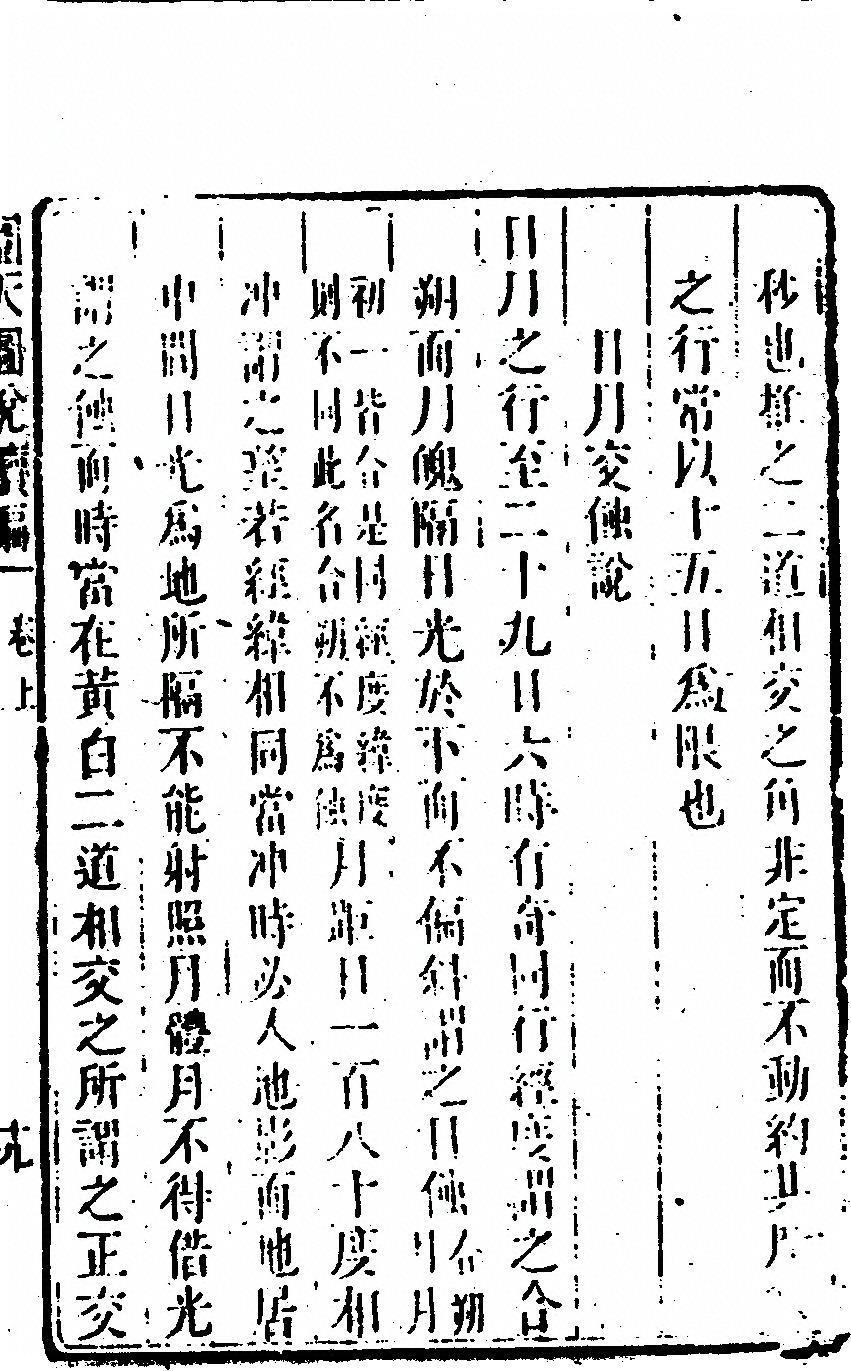 秒也推之二道相交之角非定而不動約其
之行常以十五日為限也
日月交蝕說
日月之行至二十九日六時有奇同行經度謂之合
朔而月魄隔日光於下面不偏斜謂之日蝕合朔日月
初一皆合是同經度緯度則不同此名合朔不為蝕月距日一百八十度相
冲謂之望若經緯相同當冲時必入地影而地居
中間日光為地所隔不能射照月體月不得借光
謂之蝕而時當在黃白二道相交之所謂之正交
圜天圖說續編 卷上